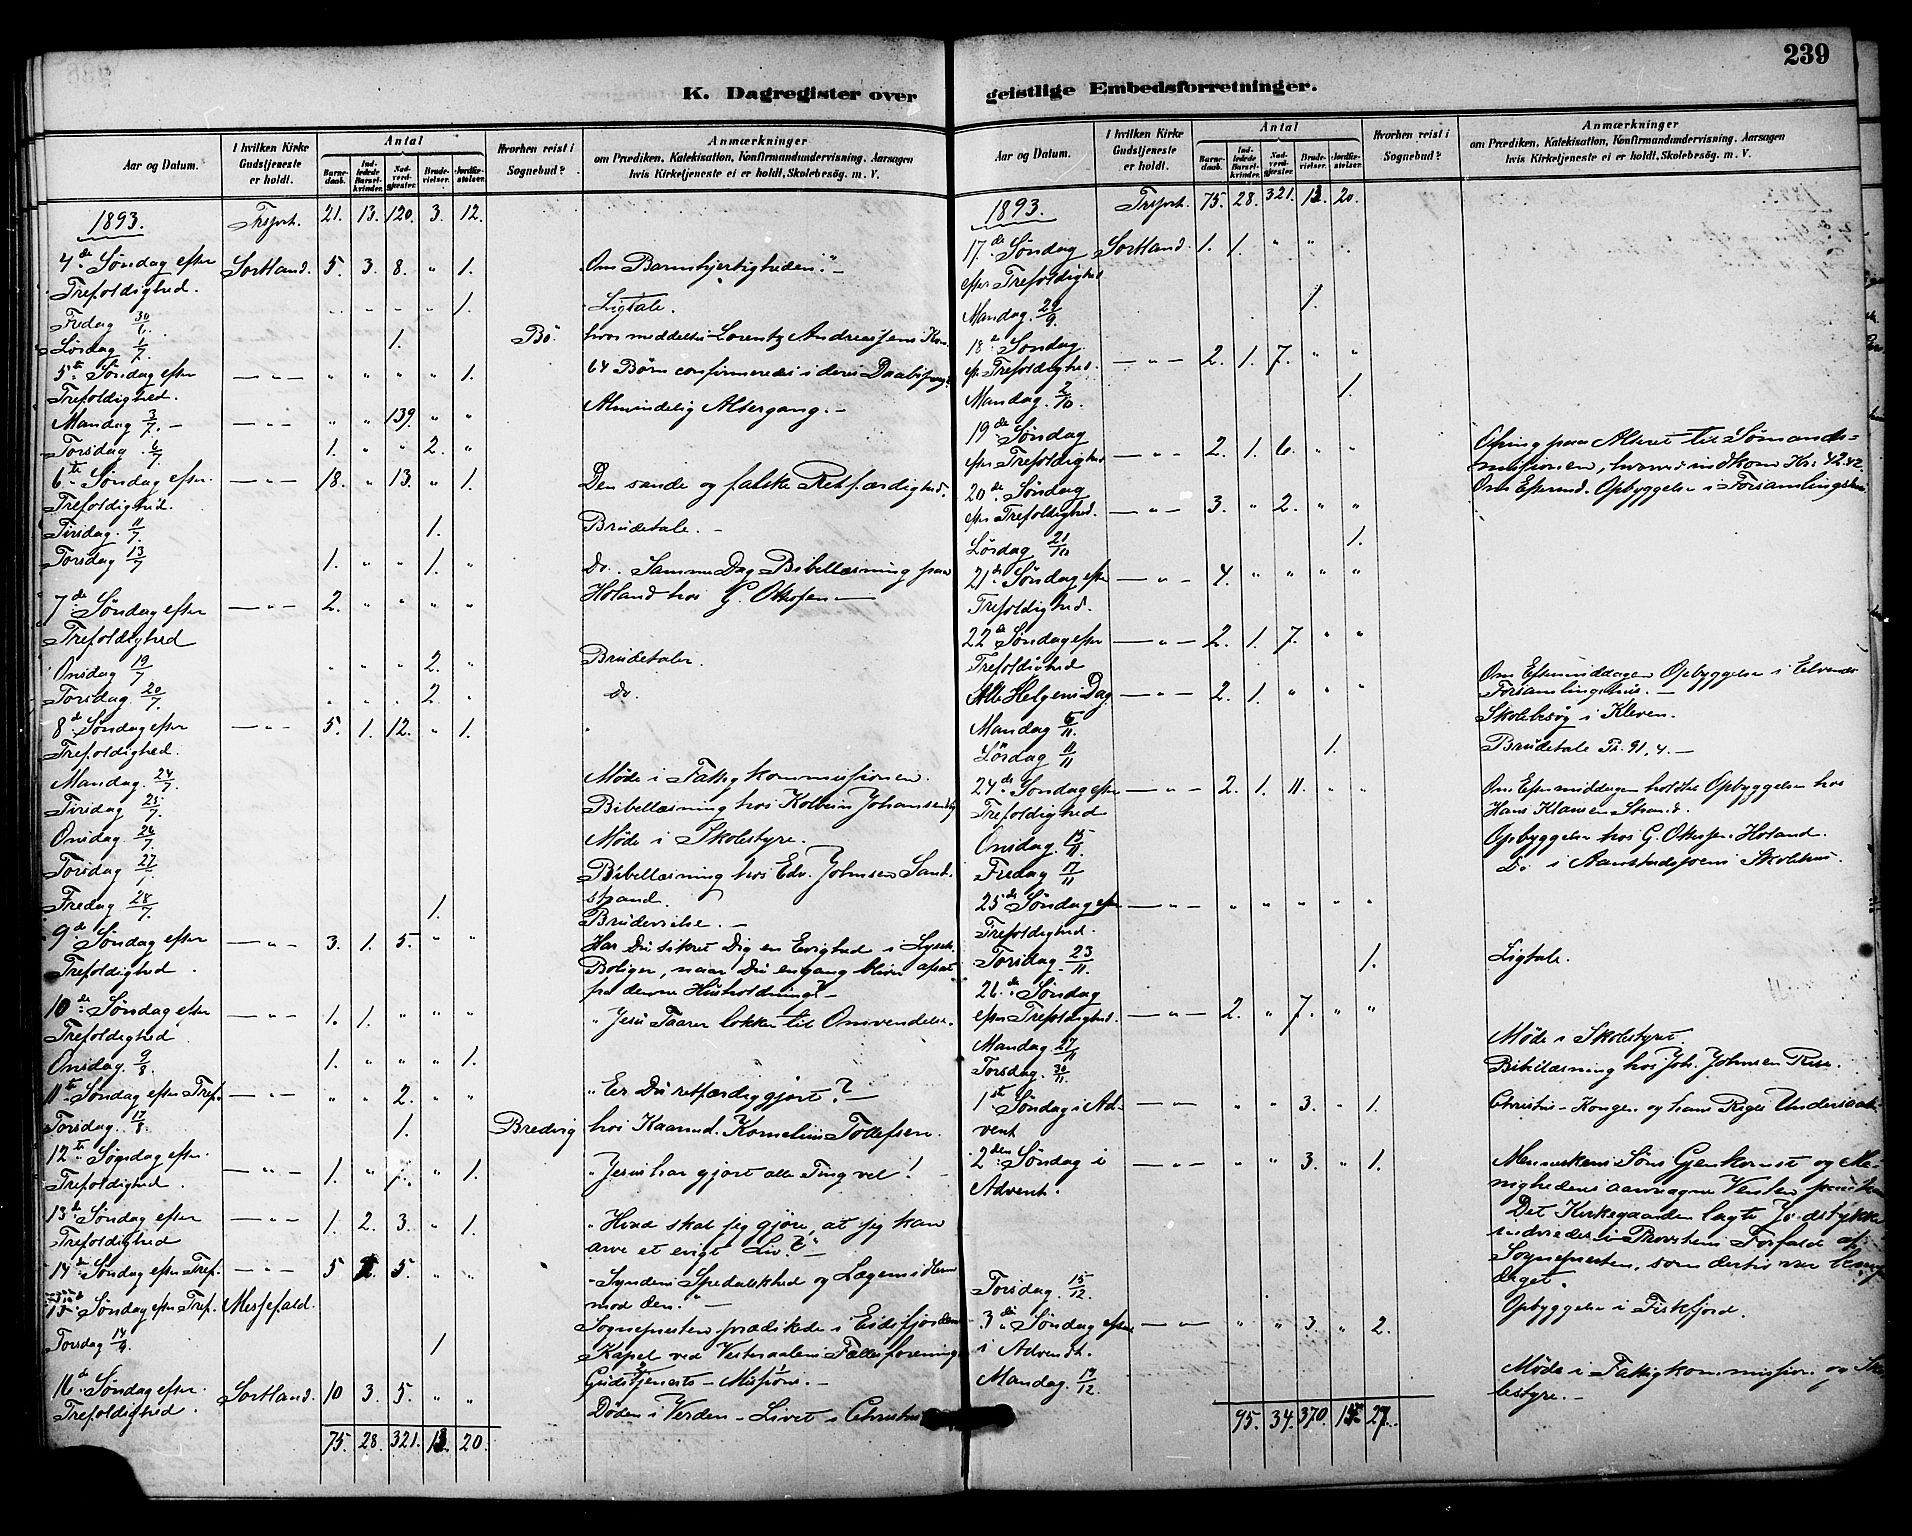 239
K. Dagregister over geistlige Embedsforretninger.
Aar og Datum. I hvilken Kirke Gudstjeneste er holdt. Antal Barnedaab. Indledede Barselkvinder. Nadverdgjester. Brudevielser. Jordfæstelser. Hvorhen reist i Sognebud? Anmærkninger om Prædiken, Katekisation, Konfirmandundervisning, Aarsagen hvis Kirketjeneste ei er holdt, Skolebesøg. m. V.
1893. Trsport. 21. 13. 120. 3. 12.
4de Søndag efter Sortland. 5. 3. 8. " 1. Om Barmhjertigheden." -
Trefoldighed.
Fredag 30/6. " " " " 1. Ligtale.
Lørdag 1/7. 1. Bø. hos meddelte Lorentz Andreassens
5te Søndag efter — " — " " " " 1. 64 Børn confirmeredes i deres
Trefoldighed.
Mandag 3/7. - — " — " " 139. " " Almindelig Altergang. -
Torsdag 6/7 1. " " 2. "
6te Søndag efter — " — 18. " 13. " 1. Den sande og falske Retfærdighed.
Trefoldighed.
Tirsdag 11/7. 1. Brudetale. -
Torsdag 13/7 1. " " 1. " do. Samme Dag Bibellæsning paa
7de Søndag efter — " — 2. " " " " Holand hos G. Ottesen —
Trefoldighed
Onsdag 19/7 " " " 2. " Brudetaler.
Torsdag 20/7. " " " 2. " do.
8de Søndag efter — " — 5. 1. 12. " 1. "
Trefoldighed.
Mandag 24/7. Møde i Fattigkommissionen.
Tirsdag 25/7. Bibellæsning hos Johansen
Onsdag 26/7. Møde i Skolestyre.
Torsdag 27/ Bibellæsning hos Edv. Johnsen Sand-
strand.
Fredag 28/7. 1. Brudevielse. -
9de Søndag efter — " — 3. 1. 5. " " Har Du sikret Dig en Evighed i Lysets
Trefoldighed Boliger, naar Du engang bliver afsat
fra denne Husholdning? -
10de Søndag efter — " — 1. 1. " " " "Jesu Taarer lokker til Omvendelse.
Trefoldighed
Onsdag 9/8. 1. " " " 1.
11te Søndag efter Tref. — " — " " 2. " " "Er Du retfærdiggjort? -
Torsdag 17/8. 1. Bredvig hos Kaarmd. Kornelius Tollefsen.
12te Søndag efter — " — 1. " " 1. "Jesus har gjort alle Ting vel!
Trefoldighed.
13de Søndag efter — " — 1. 2. 3. " 1. "Hvad skal jeg gjøre, at jeg kan
Trefoldighed arve et evigt Liv?"
14de Søndag efter Tref. — " — 5 5. " " Syndens Spedalskhed og Lægemidlerne
mod den." -
15de Søndag efter Tref. Messefald. Sognepresten prædikede i Eidsfjordens
Torsdag 14/9. 1 Kapel ved Vesteraalens Fællesforenings
Gudstjeneste - Missions. -
16de Søndag efter Sortland. 10 3. 5. " " Døden i Verden - Livet i Christus
Trefoldighed.
75. 28. 321. 13. 20.
Aar og Datum. I hvilken Kirke Gudstjeneste er holdt. Antal Barnedaab. Indledede Barselkvinder. Nadverdgjester. Brudevielser. Jordfæstelser. Hvorhen reist i Sognebud? Anmærkninger om Prædiken, Katekisation, Konfirmandundervisning, Aarsagen hvis Kirketjeneste ei er holdt, Skolebesøg. m. V.
1893. Trsport. 75. 28. 321. 13. 20.
17de Søndag Sortland. 1. 1. " " "
efter Trefoldighed
Mandag 1.
18de Søndag — " — 2. 1. 7. " "
eft. Trefoldighed.
Mandag 2/10 1.
19de Søndag — " — 2. 1. 6. " " Ofring paa Alteret til Sømands-
efter Trefoldighed missionen, hvorved indkom Kr: 42.42.
20de Søndag — " — 3. " 2. " " Om Eftermd. Opbyggelse i Forsamlingshus
efter Trefoldighed.
Lørdag 21/10 1.
21de Søndag efter — " — 4. " " " "
Trefoldighed.
22de Søndag efter — " — 2. 1. 7. " "
Trefoldighed
Alle Helgens Dag — " — 2. 1. " " " Om Eftermiddagen Opbyggelse i
Forsamlingshus. -
Mandag 6/11. Skolebesøg i Kleven.
Lørdag 11/11 1. Brudetale Ps. 91, 4. -
24de Søndag efter — " — 2. 1. 11. " " Om Eftermiddagen holdtes Opbyggelse hos
Trefoldighed Hans Klausen Strand.
Onsdag 15/11. Opbyggelse hos G. Ottesen Holand.
Fredag 17/11 Do i Skolehus.
25de Søndag efter — " — " " " " "
Trefoldighed.
Torsdag 23/11. 1. Ligtale.
26de Søndag — " — 2. " 7. " "
efter Trefoldighed.
Mandag 27/11 Møde i Skolestyret.
Torsdag 30/11. Bibellæsning hos Joh. Johnsen Rise.
1ste Søndag i Ad- — " — " " 3. " 1. Christus - Kongen og hans Riges Undersaatter
vent
2den Søndag i — " — " " 3. " 1. Menneskens Søns Gjenkomst og Me-
Advent. nighedens
Det Kirkegaarden lagte Jordstykke
indviedes i Provstens Forfald af
Sognepresten, som dertil var
Torsdag 15/12. Opbyggelse i Fiskfjord.
3de Søndag efter — " — " " 3. " 2.
i Advendt.
Mandag Møde i Fattigkommission og Sko-
lestyre. -
95. 34. 370. 27.